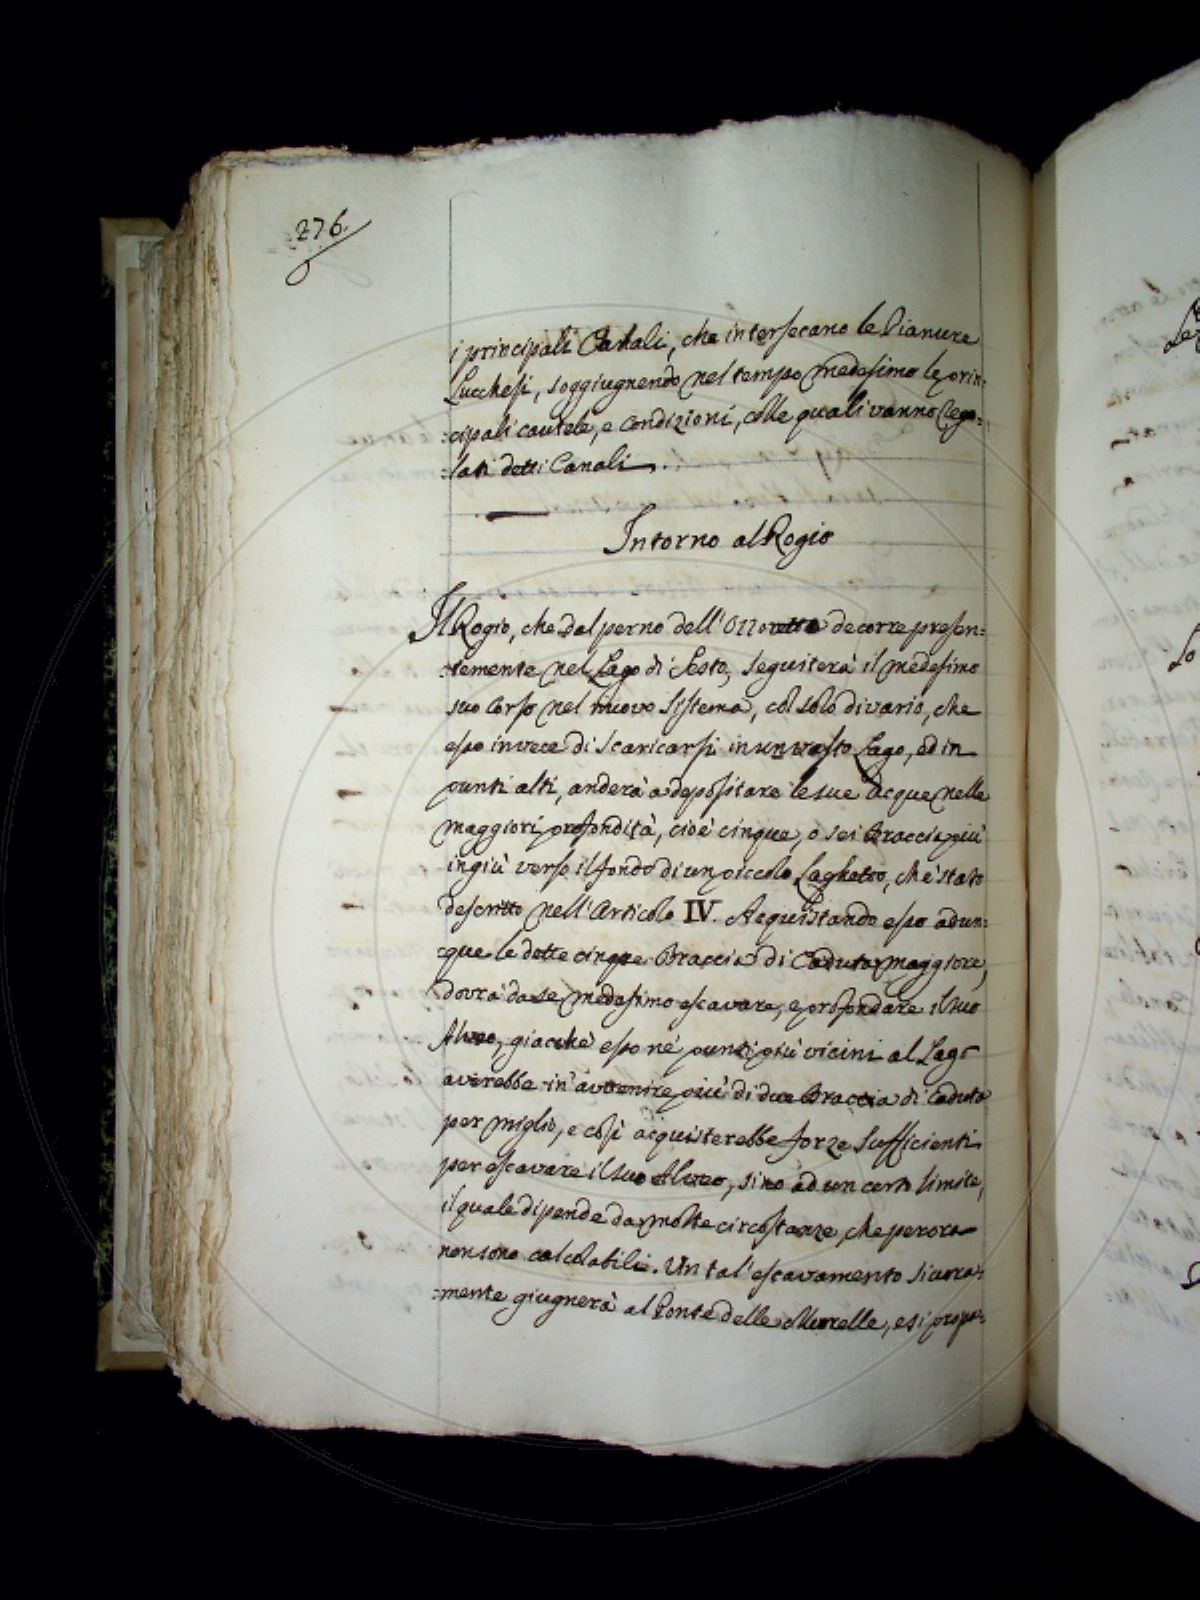 276.
i principali Canali, che intersecano le Pianure
Lucchesi, soggiugnendo nel tempo medesimo le prin=
=cipali cautele, e condizioni, colle quali vanno rego=
=lati detti Canali.
Intorno al Rogio
Il Rogio, che dal perno dell'Ozzoretto decorre presen=
=temente nel Lago di Sesto, seguiterà il medesimo
suo Corso nel nuovo Sistema, col solo divario, che
esso invece di scaricarsi in un vasto Lago, ed in
punti alti, anderà a depositare le sue acque nelle
maggiori profondità, cioè cinque, o sei Braccia più
in giù verso il fondo di un piccolo Laghetto, ch'è stato
descritto nell'Articolo IV. Acquistando esso adun=
=que le dette cinque Braccia di Caduta maggiore,
dovrà da se medesimo escavare, e profondare il suo
Alveo, giacchè esso ne' punti più vicini al Lago
averebbe in avvenire più di due Braccia di Caduta
per miglio, e così acquisterebbe forze sufficienti
per escavare il suo Alveo, sino ad un certo limite,
il quale dipende da molte circostanze, che per ora
non sono calcolabili. Un tal'escavamento sicura=
=mente giugnerà al Ponte delle Morelle, e si propa=